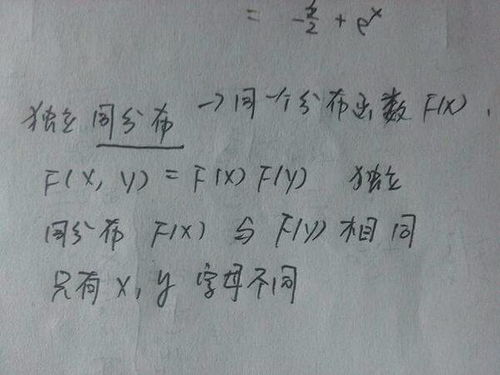 = -x/2 + e^x
独立同分布 →同一个分布函数 F(x).
F(x, y) = F(x) F(y) 独立
同分布 F(x) 与 F(y) 相同
只有 x, y 字母不同